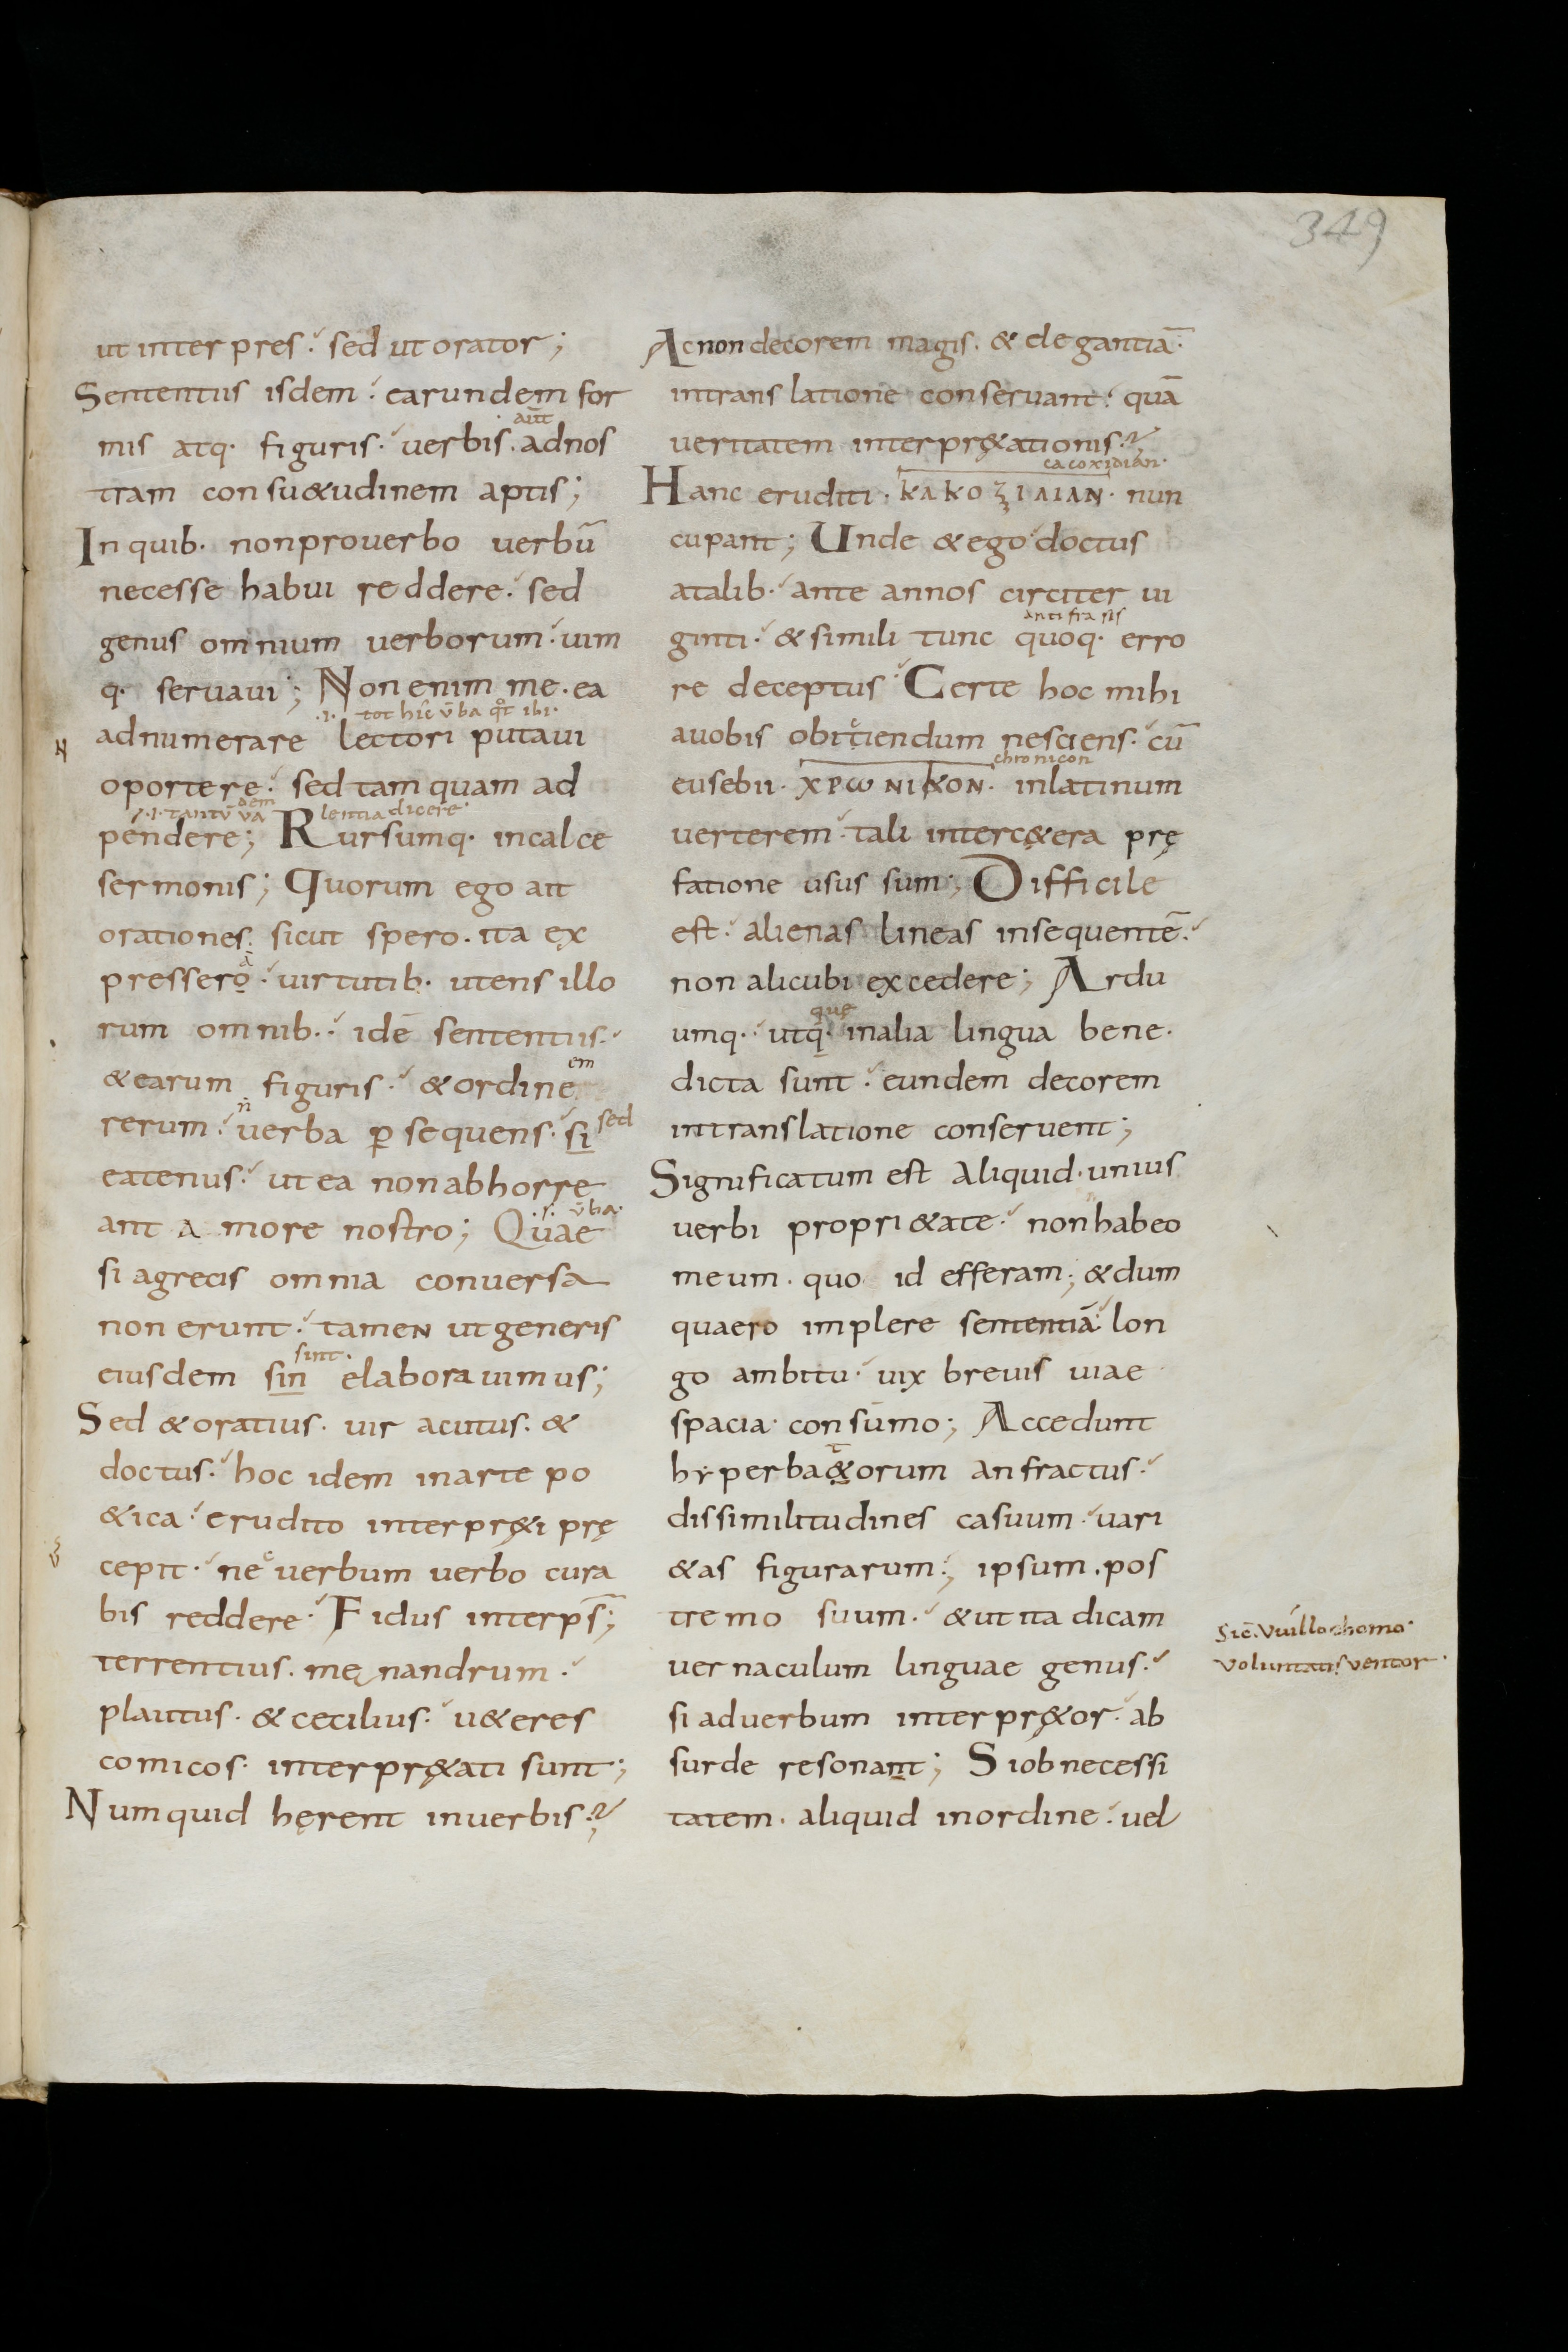 349
ut inter pres. sed ut orator;
Sententiis isdem. earundem for
aut̄
mis atq· figuris. uerbis. adnos
tram consu&udinem aptis;
In quib· nonproverbo uerbū
necesse habui reddere. sed
genus omnium uerborum. uim
q· servavi; Non enim me. ea
.i. tot hic ūba qͦt ibi.
adnumerare lectori putaui
oportere. sed tamquam ad
.i. tantū lentia dicere
pendere; Rursumq· incalce
sermonis; Quorum ego ait
orationes. sicut spero. ita ex
pressero. uirtutib· utens illo
rum omnib·. idē sententiis.
em
&earum figuris. &ordine
n sed
rerum. uerba ꝑsequens. si
eatenus. ut ea nonabhorre
.s. ūba.
ant a more nostro; Quae
si agrecis omnia conuersa
non erunt. tamen ut generis
sint.
eiusdem sin elaborauimus;
Sed &oratius. uir acutus. &
doctus. hoc idem inarte po
&ica. erudito interpr&i prę
cepit. ne uerbum uerbo cura
bis reddere. Fidus interp̄s;
terrentius. menandrum.
plautus. &cecilius. u&eres
comicos. interpr&ati sunt;
Numquid hęrent inuerbis?
Acnon decorem magis. &elegantiā.
intranslatione conseruant. quā
ueritatem interpr&ationis?
cacoxidian.
Hanc eruditi. ΚΑΚΟΖΙΛΙΑΝ. nun
cupant; Unde &ego doctus
atalib· ante annos circiter ui
antifrasis
ginti. &simili tunc quoq· erro
re deceptus Certe hoc mihi
auobis obiciendum nesciens. cū
chronicon
eusebii. ΧΡΩΝΙΚΟΝ. inlatinum
uerterem. tali interc&era prę
fatione usus sum; Difficile
est. alienas lineas insequentē.
non alicubi excedere; Ardu
que
umq· utq· inalia lingua bene.
dicta sunt. eundem decorem
intranslatione conseruent;
Significatum est aliquid. unius
uerbi propri&ate. nonhabeo
meum. quo id efferam; &dum
quaero implere sententiā. lon
go ambitu. uix breuis uiae
spacia consumo; Accedunt
t
hyperba&orum anfractus.
dissimilitudines casuum. uari
&as figurarum; ipsum. pos
tremo suum. &ut ita dicam
uernaculum linguae genus.
si aduerbum interpr&or. ab
surde resonant; Siobnecessi
tatem. aliquid inordine. uel
Sic̄. Vuillachomo.
Voluntatis ventor.